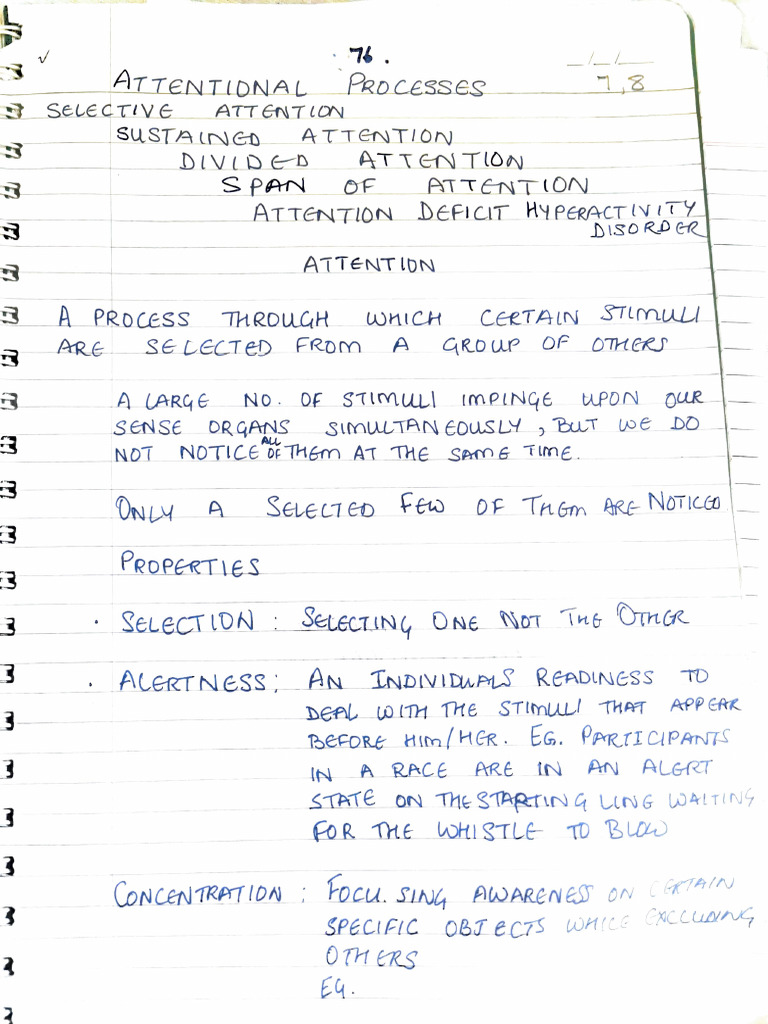 76.
ATTENTIONAL PROCESSES 7,8
SELECTIVE ATTENTION
SUSTAINED ATTENTION
DIVIDED ATTENTION
SPAN OF ATTENTION
ATTENTION DEFICIT HYPERACTIVITY
DISORDER
ATTENTION
A PROCESS THROUGH WHICH CERTAIN STIMULI
ARE SELECTED FROM A GROUP OF OTHERS
A LARGE NO. OF STIMULI IMPINGE UPON OUR
SENSE ORGANS SIMULTANEOUSLY, BUT WE DO
NOT NOTICE ALL OF THEM AT THE SAME TIME.
ONLY A SELECTED FEW OF THEM ARE NOTICED
PROPERTIES
· SELECTION : SELECTING ONE NOT THE OTHER
· ALERTNESS : AN INDIVIDUALS READINESS TO
DEAL WITH THE STIMULI THAT APPEAR
BEFORE HIM/HER. EG. PARTICIPANTS
IN A RACE ARE IN AN ALERT
STATE ON THE STARTING LING WAITING
FOR THE WHISTLE TO BLOW
CONCENTRATION : FOCU.SING AWARENESS ON CERTAIN
SPECIFIC OBJECTS WHILE EXCLUDING
OTHERS
EG.